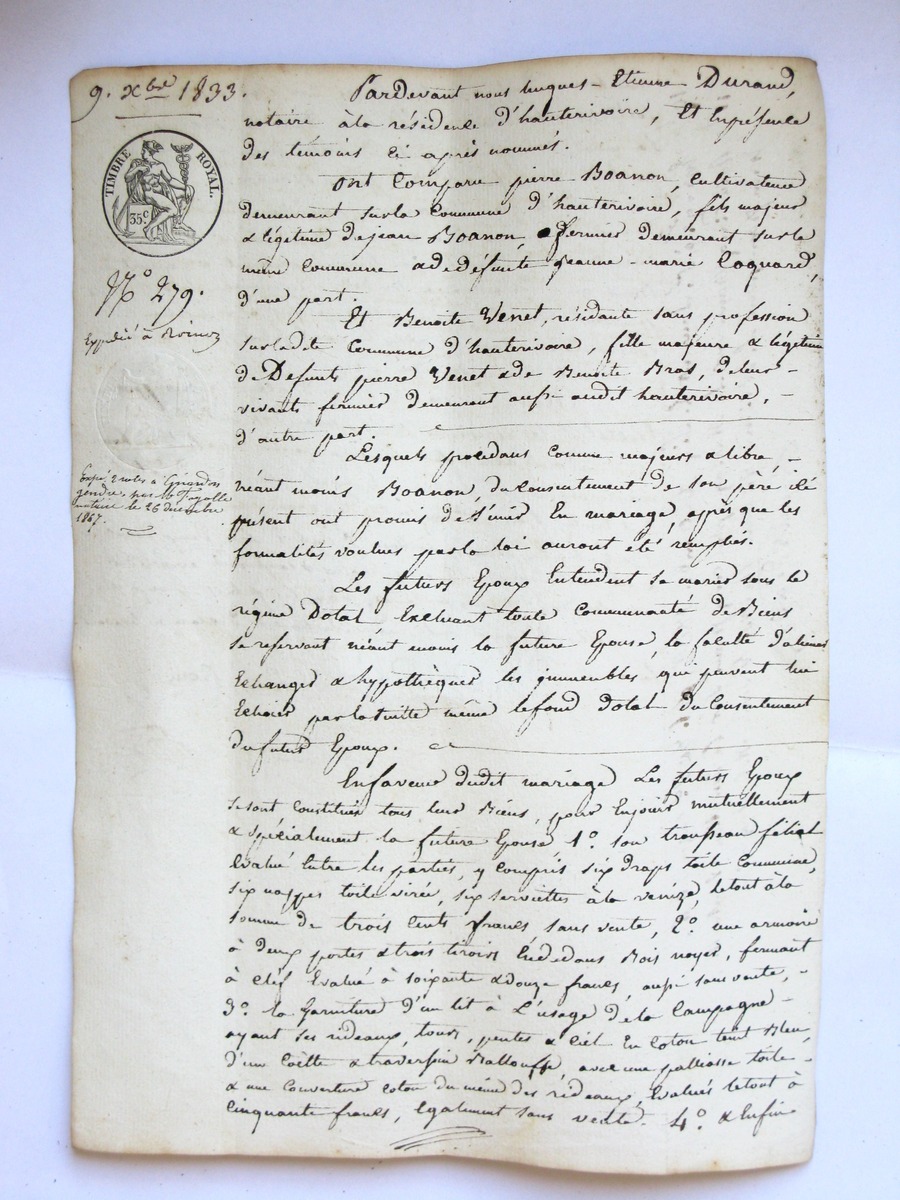 9. Xbre 1833.
TIMBRE ROYAL.
35c
No 279.
Expédié à
Expé. 2 rôles à Girardon
gendre, par Me Fayolle
notaire le 26 décembre
1867.
Pardevant nous hugues-Etienne Durand,
notaire à la résidence d'hauterivoire, Et En présence
des témoins Ci après nommés.
Ont Comparu pierre Boanon, Cultivateur
demeurant sur la Commune d'hauterivoire, fils majeur
& légitime de jean Boanon, fermier demeurant sur la
même Commune & de défunte jeanne-marie Coquard,
d'une part.
Et Benoîte Venet, résidante sans profession
sur ladite Commune d'hauterivoire, fille majeure & légitime
de Défunts pierre Venet & de Benoîte Bras, de leur-
vivants fermiers demeurant aussi audit hauterivoire,-
d'autre part.
Lesquels procédans comme majeurs & libre,-
néant moins Boanon, du Consentement de son père ici
présent ont promis de s'unir En mariage, après que les
formalités voulues par la loi auront été remplies.
Les futurs Epoux Entendent se marier sous le
régime Dotal Excluant toute Communauté de Biens
se réservant néant moins la future Epouse, la faculté d'aliéner
Echanger & hypothéquer les immeubles qui peuvent lui
Echoir par la suitte même le fond dotal du Consentement
du futur Epoux.
En faveur dudit mariage Les futurs Epoux
se sont Constitués tous leurs Biens, pour En jouir mutuellement
& spécialement la future Epouse 1o. son trousseau filial
Evalué Entre les parties, y compris six draps toile Commune,
six nappes toile virée, six serviettes à la venize, le tout à la
somme de trois Cents francs sans vente, 2o. une armoire
à deux portes & trois tiroirs En dedans Bois noyer, fermant
à clef Evalué à soixante & douze francs, aussi sans vente,-
3o. la garniture d'un lit à L'usage de la Campagne-
ayant ses rideaux, tours, pentes & Ciel En Coton teint Bleu,
d'un Coëtte & traversin Ballouffe, avec une palliasse toile-
& une Couverture coton du même des rideaux, Evalués le tout à
Cinquante francs, Egalement sans vente. 4o. & Enfin